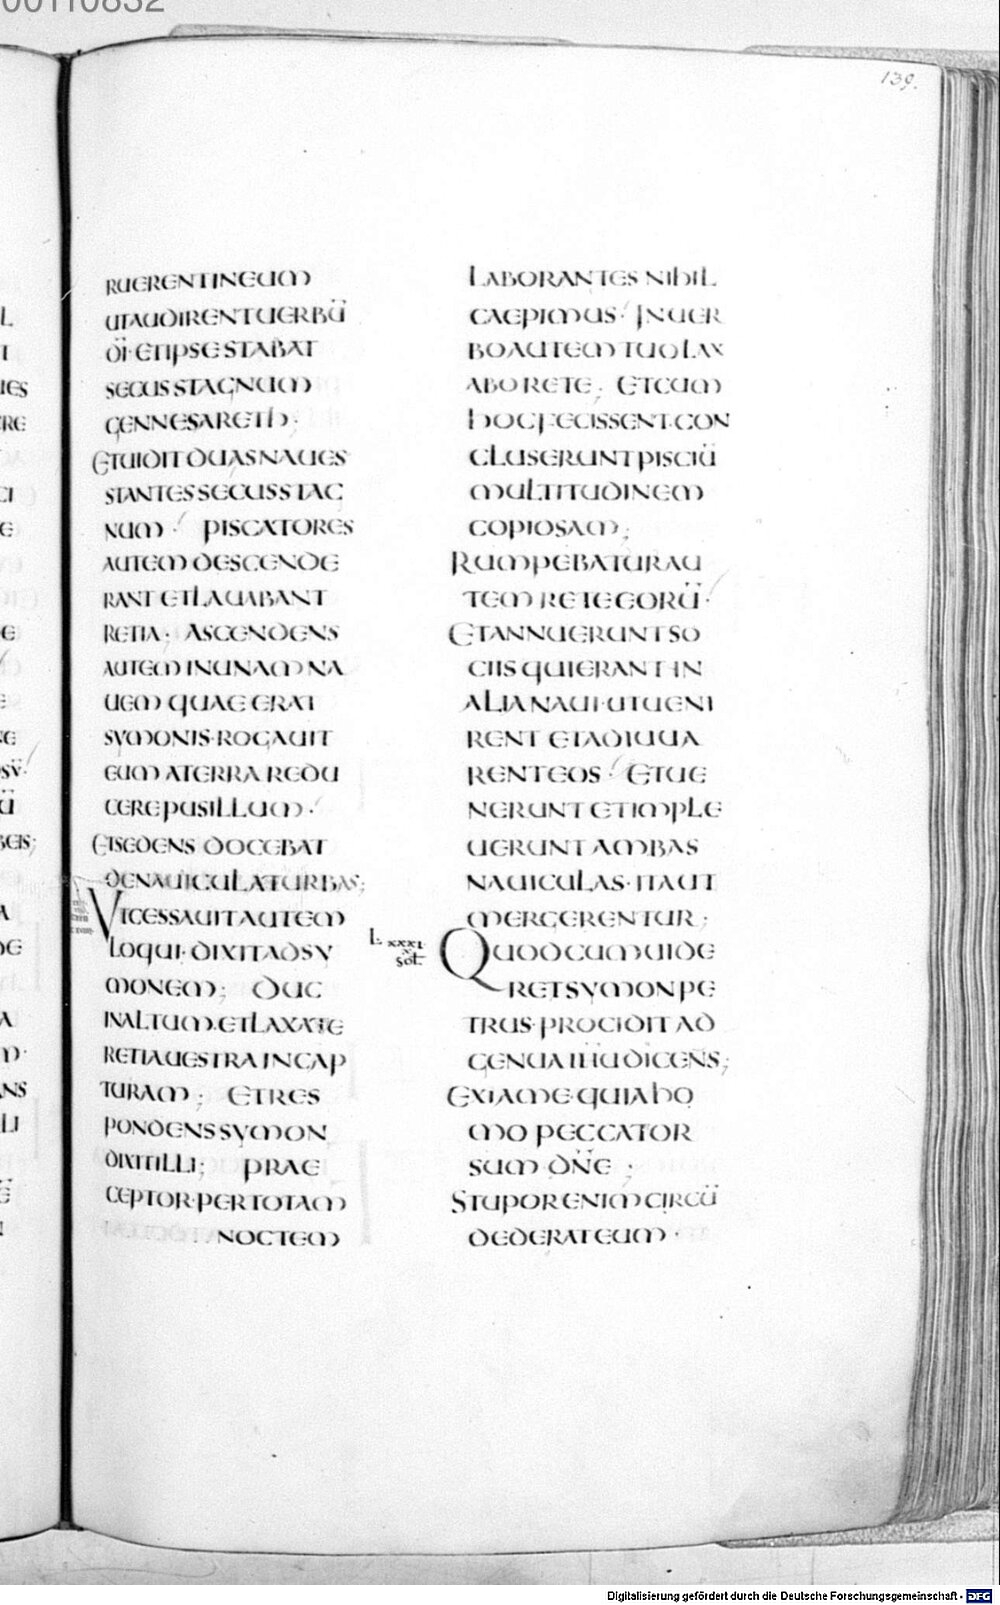 139.
RUERENTINEUM
UTAUDIRENTUERBŪ
D̄I·ETIPSESTABAT
SECUSSTAGNUM
GENNESARETH;
ETUIDITDUASNAUES
STANTESSECUSSTAG
NUM· PISCATORES
AUTEMDESCENDE
RANTETLAUABANT
RETIA· ASCENDENS
AUTEMINUNAMNA
UEM QUAEERAT
SYMONIS·ROGAUIT
EUMATERRAREDU
CEREPUSILLUM·
ETSEDENS DOCEBAT
DENAUICULATURBAS;
VTCESSAUITAUTEM
LOQUI·DIXITADSY
MONEM; DUC
INALTUM·ETLAXATE
RETIAUESTRAINCAP
TURAM; ETRES
PONDENSSYMON
DIXITILLI; PRAE
CEPTOR·PERTOTAM
NOCTEM
LABORANTES NIHIL
CAEPIMUS· INUER
BOAUTEMTUOLAX
ABORETE; ETCUM
HOCFECISSENT·CON
CLUSERUNTPISCIŪ
MULTITUDINEM
COPIOSAM;
RUMPEBATURAU
TEMRETEEORŪ·
ETANNUERUNTSO
CIISQUIERANTIN
ALIANAUI·UTUENI
RENT ETADIUUA
RENTEOS· ETUE
NERUNTETIMPLE
UERUNTAMBAS
NAUICULAS·ITAUT
MERGERENTUR;
L. XXXI
X
Sol.
QUODCUMUIDE
RETSYMONPE
TRUS·PROCIDITAD
GENUAIH̄UDICENS;
EXIAME·QUIAHO
MO PECCATOR
SUM DN̄E;
STUPORENIMCIRCŪ
DEDERATEUM·
Digitalisierung gefördert durch die Deutsche Forschungsgemeinschaft - DFG